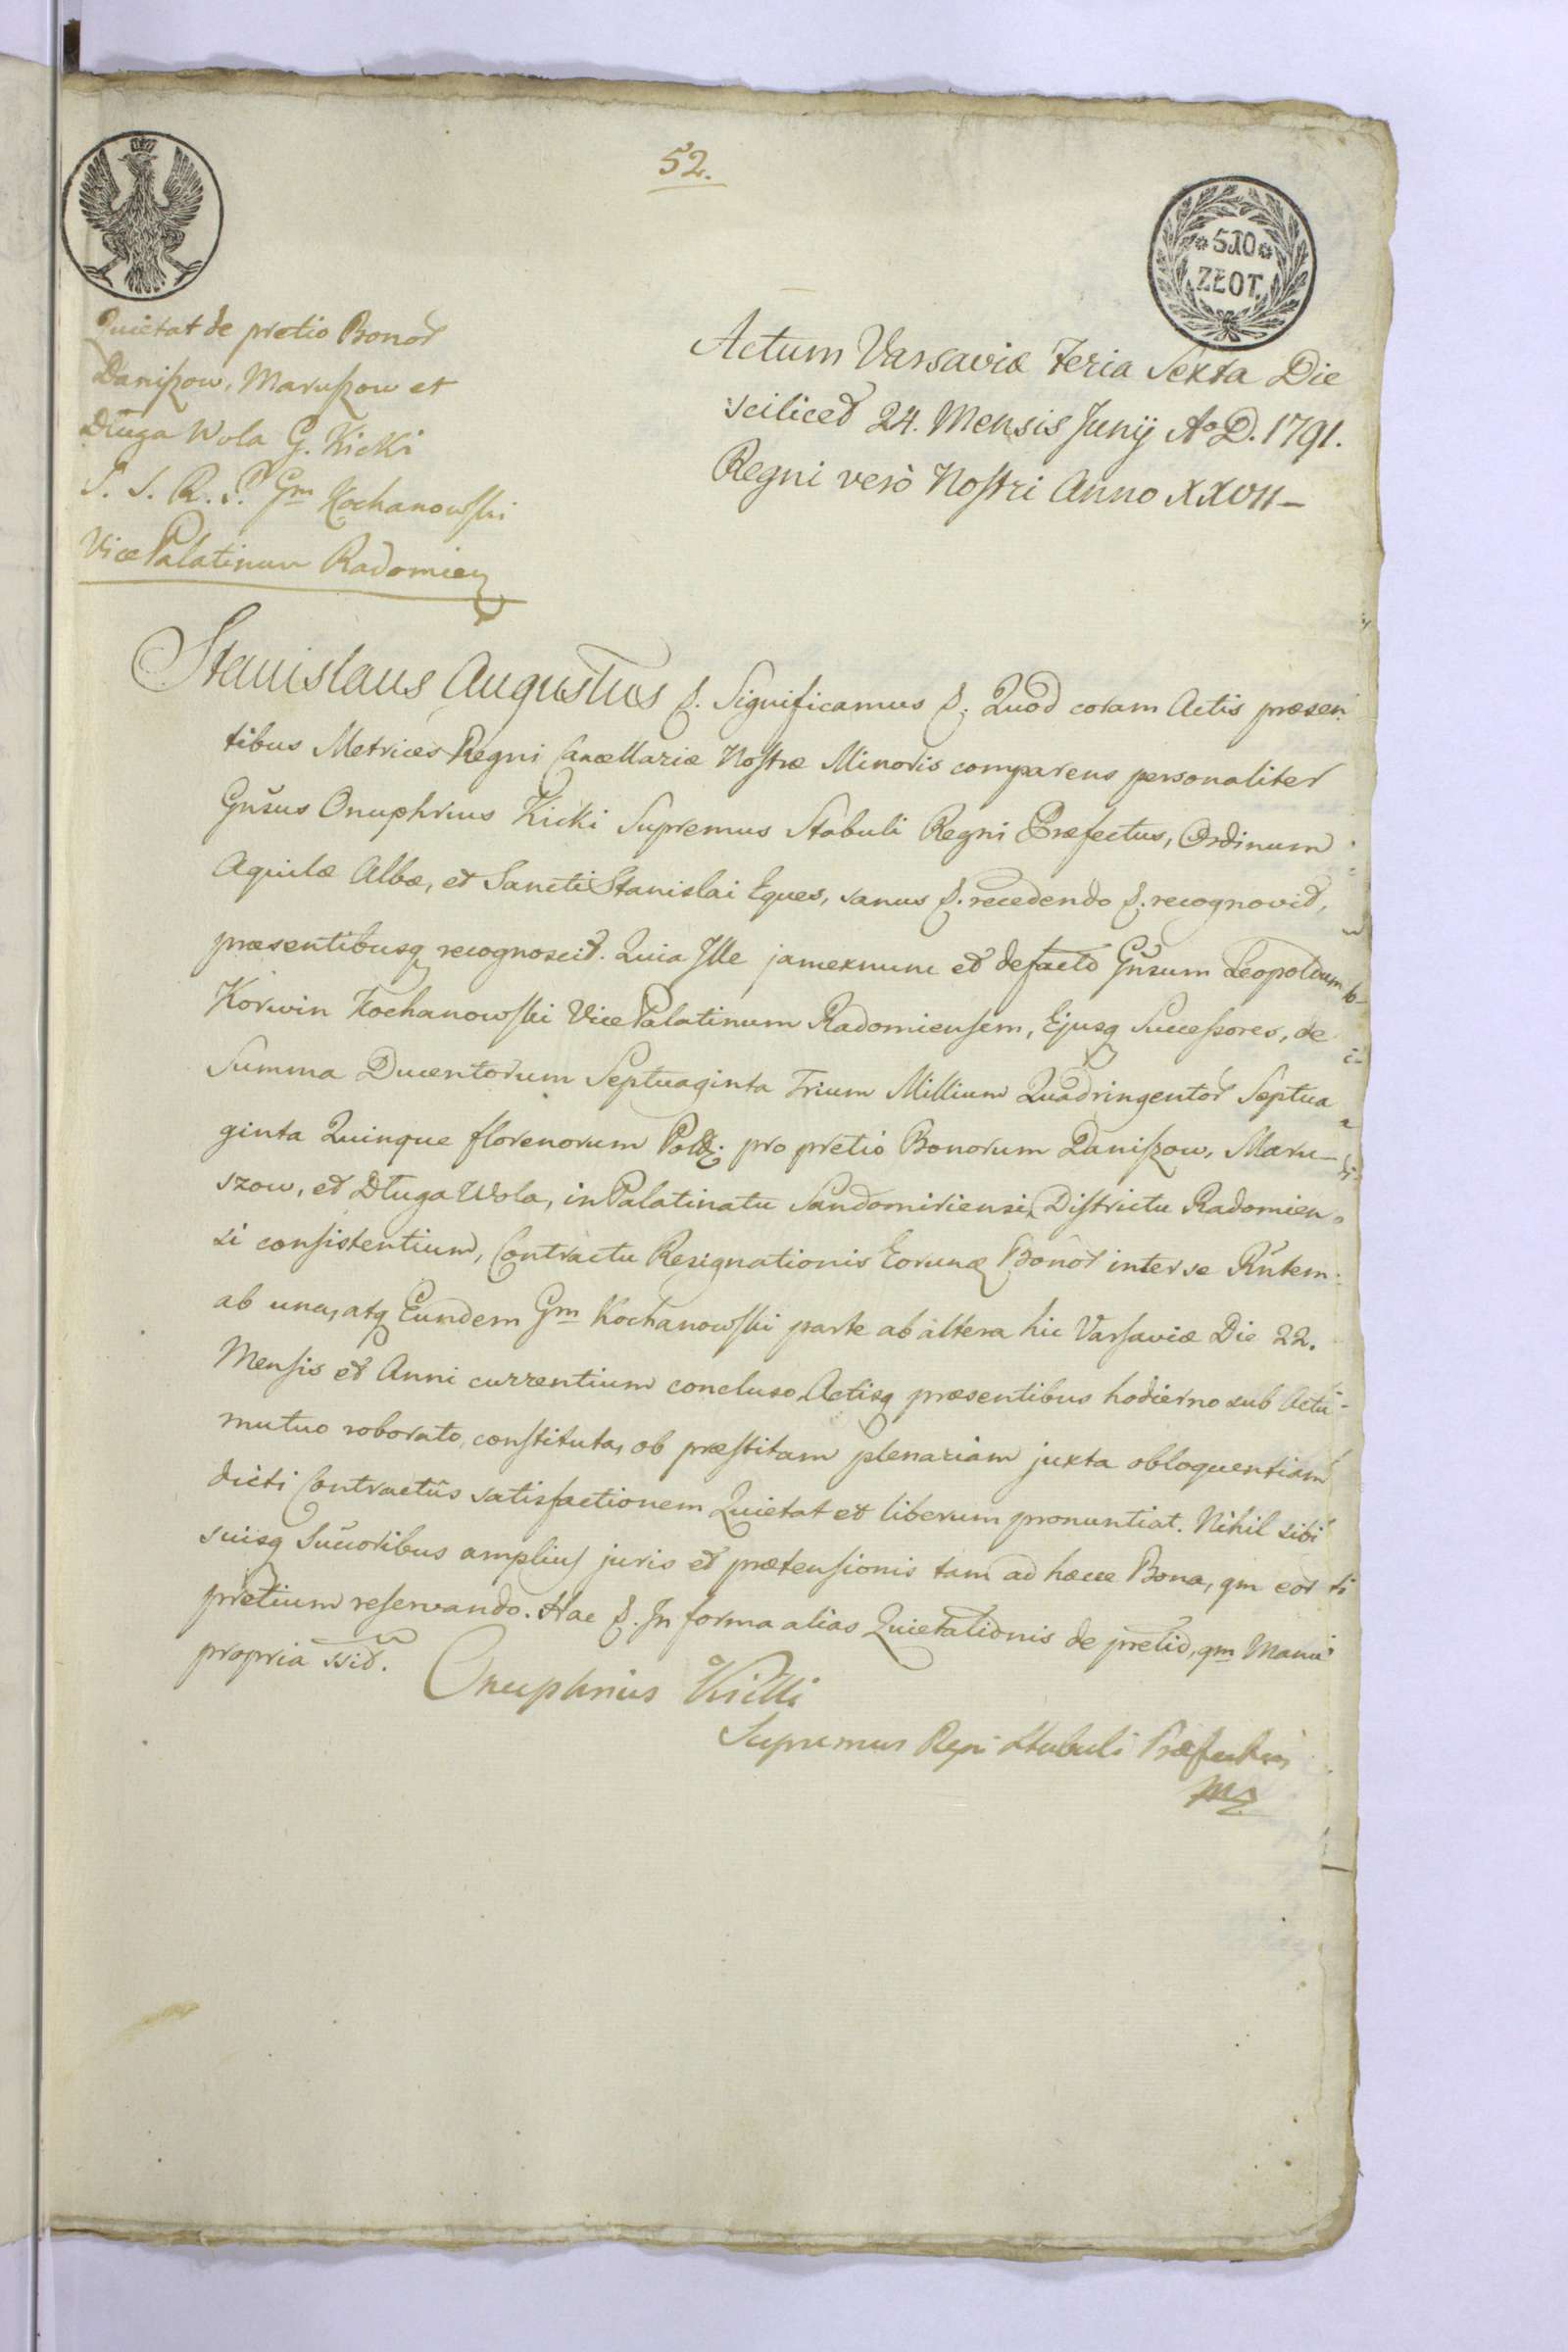 52.
*510*
ZŁOT.
Quietat de pretio Bonor
Daniszow, Maruszow et
Długa Wola G. Kicki
S. S. R. P. Gm Kochanowski
Vice Palatinum Radomien
Actum Varsaviæ Feria Sexta Die
scilicet 24. Mensis Junij Ao D. 1791.
Regni verò Nostri Anno XXVII—
Stanislaus Augustus &. Significamus &. Quod coram Actis præsen
tibus Metrices Regni Cancellariæ Nostræ Minoris comparens personaliter
Gnsus Onuphrius Kicki Supremus Stabuli Regni Præfectus, Ordinum
Aquilæ Albæ, et Sancti Stanislai Eques, sanus &. recedendo &. recognovit,
præsentibusq recognoscit. Quia Ille jamexnunc et defacto Gnsum Leopoldum
Korwin Kochanowski Vice Palatinum Radomiensem, Ejusq Successores, de
Summa Ducentorum Septuaginta Trium Millium Quadringentor Septua
ginta Quinque florenorum Poll; pro pretio Bonorum Daniszow, Maru—
szow, et Długa Wola, in Palatinatu Sandomiriensi, Districtu Radomien
si consistentium, Contractu Resignationis Eorunq Bonor inter se Rntem
ab una, atq Eundem Gm Kochanowski parte ab altera hic Varsaviæ Die 22.
Mensis et Anni currentium concluso, Actisq præsentibus hodierno sub Actu
mutuo roborato, constituta, ob præstitam plenariam juxta obloquentiam
dicti Contractûs satisfactionem Quietat et liberum pronuntiat. Nihil sibi
suisq Sucoribus amplius juris et prætensionis tam ad hæcce Bona, qm eor
pretium reservando. Hac &. In forma alias Quietationis de pretio, qm Manu
propria ssit. Onuphrius Kicki
Supremus Regni Stabuli Præfectus
mp